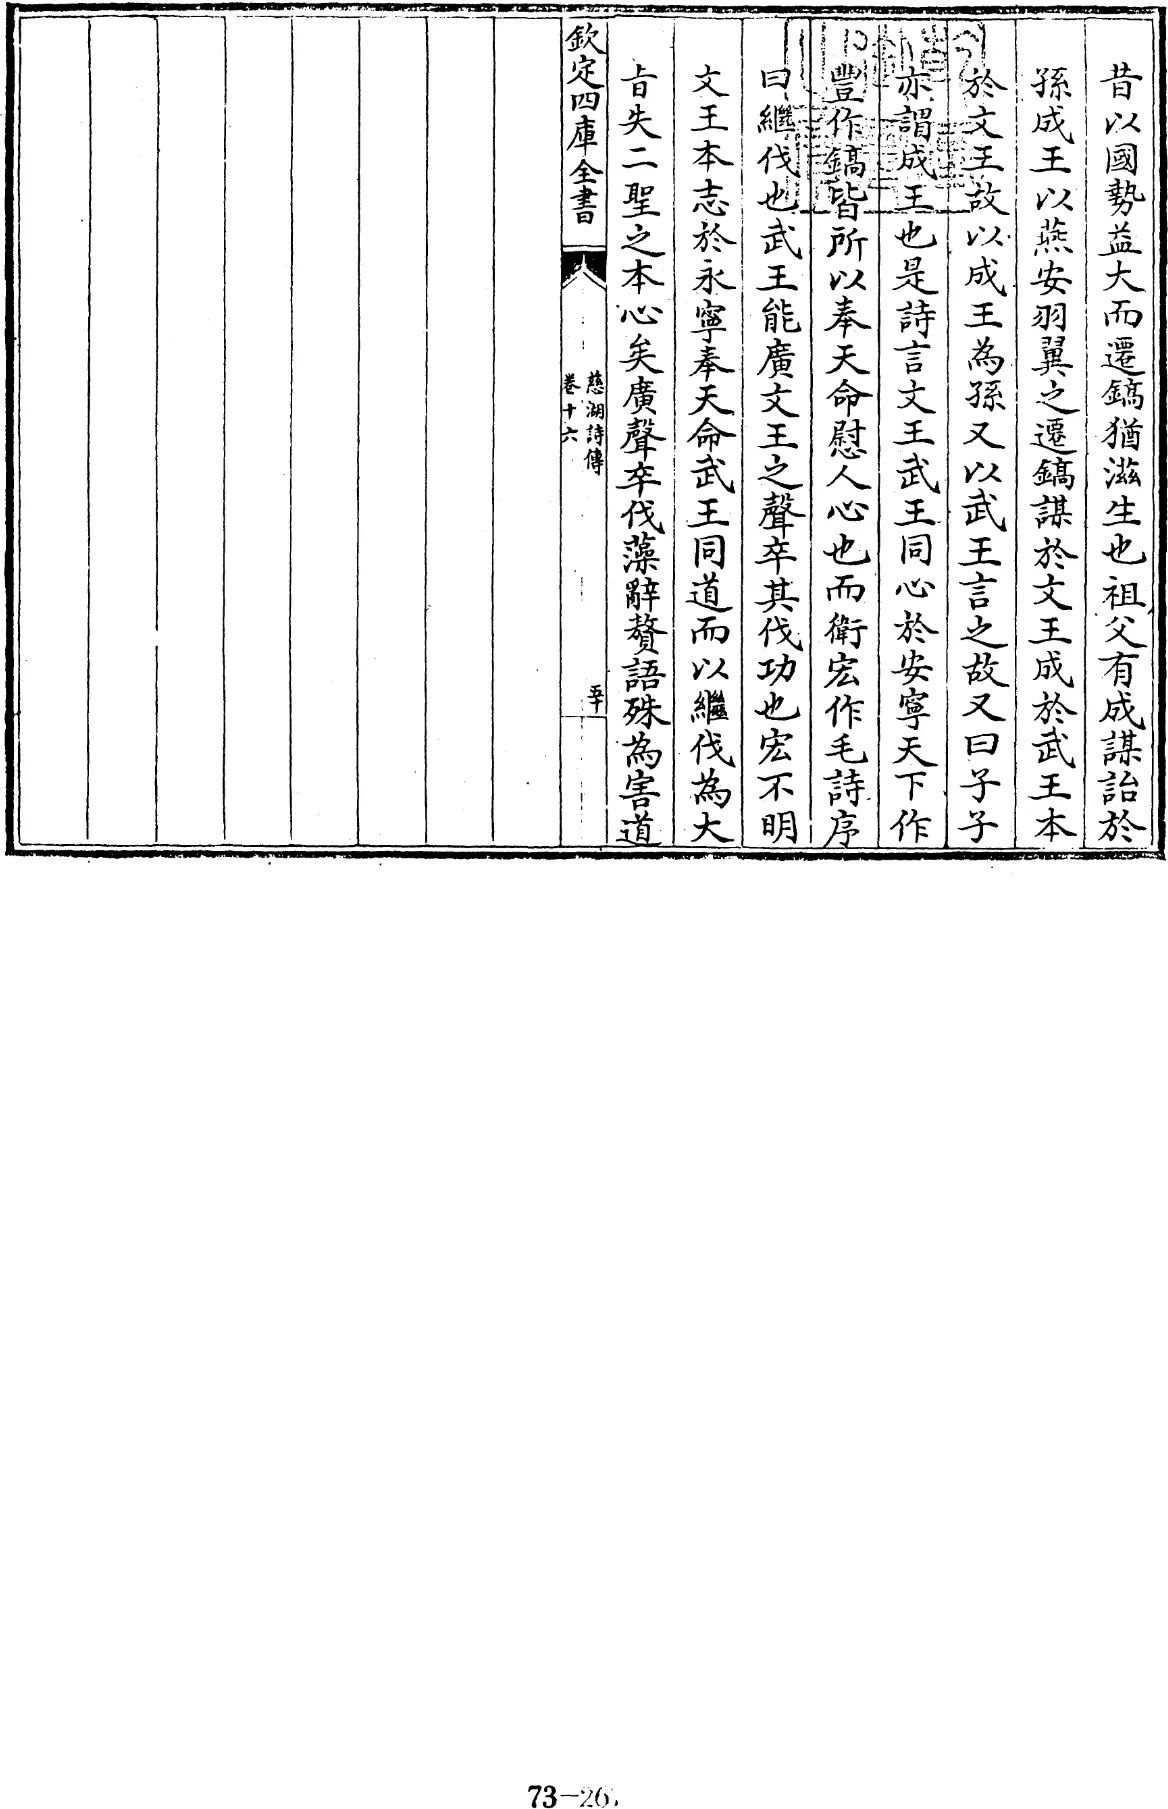 昔以國勢益大而遷鎬猶滋生也祖父有成謀詒於
孫成王以燕安羽翼之遷鎬謀於文王成於武王本
於文王故以成王為孫又以武王言之故又曰子子
亦謂成王也是詩言文王武王同心於安寧天下作
豐作鎬皆所以奉天命慰人心也而衛宏作毛詩序
曰繼伐也武王能廣文王之聲卒其伐功也宏不明
文王本志於永寧奉天命武王同道而以繼伐為大
旨失二聖之本心矣廣聲卒伐藻辭贅語殊為害道
欽定四庫全書
慈湖詩傳
卷十六
五十
73-26